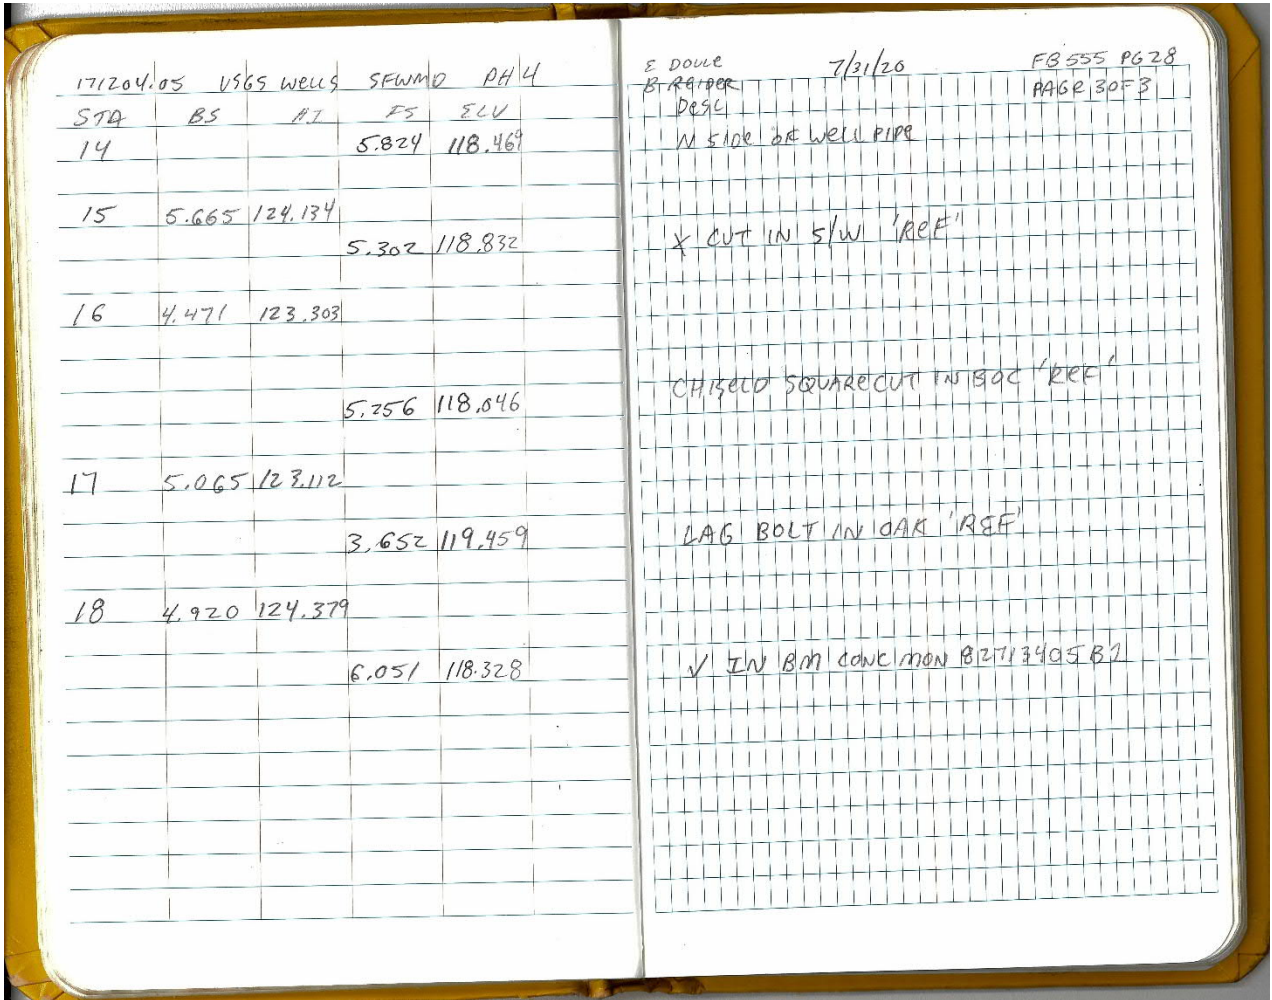 171204.05 USGS WELLS SFWMD PH 4
STA BS HI FS ELV
14 5.824 118.469
15 5.665 124.134
5.302 118.832
16 4.471 123.303
5.256 118.046
17 5.065 123.112
3.652 119.459
18 4.920 124.379
6.051 118.328
E DOLLE 7/31/20 FB 555 PG 28
PAGE 3 OF 3
DESC
N SIDE OF WELL PIPE
X CUT IN S/W 'REF'
SQUARE CUT IN BOC 'REF'
LAG BOLT IN OAK 'REF'
√ IN BM CONC MON 82713405B1